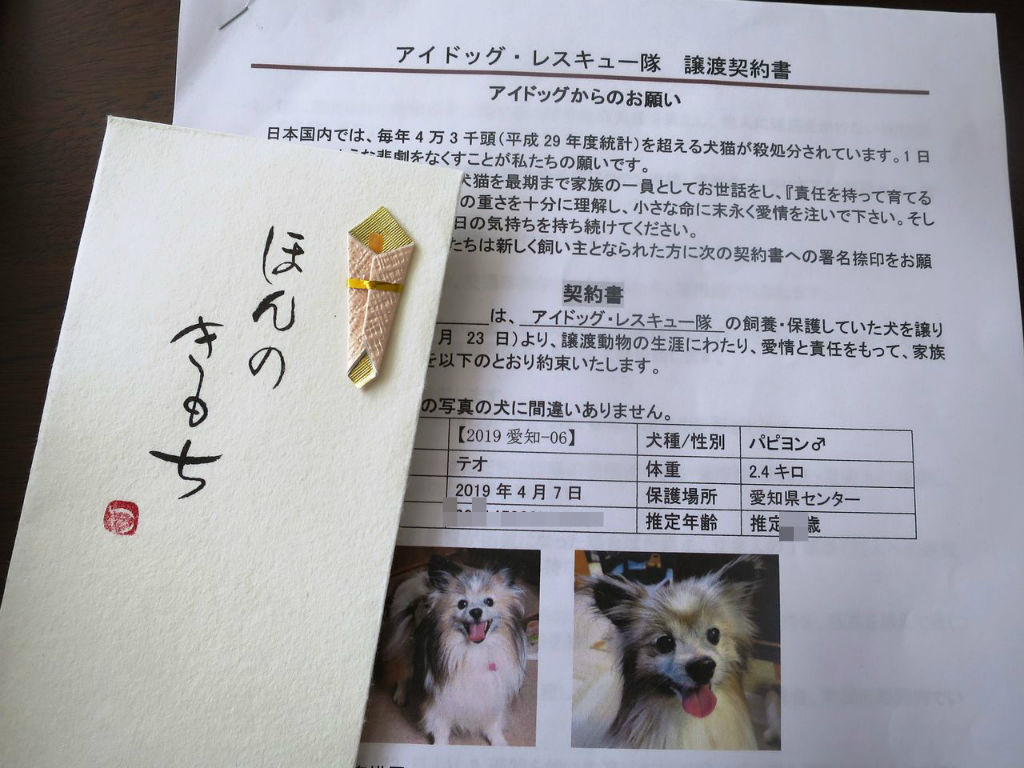 アイドッグ・レスキュー隊　譲渡契約書
アイドッグからのお願い
日本国内では、毎年4万3千頭(平成29年度統計)を超える犬猫が殺処分されています。1日
な悲劇をなくすことが私たちの願いです。
犬猫を最期まで家族の一員としてお世話をし、『責任を持って育てる
の重さを十分に理解し、小さな命に末永く愛情を注いで下さい。そし
日の気持ちを持ち続けてください。
たちは新しく飼い主となられた方に次の契約書への署名捺印をお願
契約書
は、アイドッグ・レスキュー隊 の飼養・保護していた犬を譲り
月 23 日)より、譲渡動物の生涯にわたり、愛情と責任をもって、家族
を以下のとおり約束いたします。
の写真の犬に間違いありません。
【2019 愛知-06】 犬種/性別 パピヨン♂
テオ 体重 2.4キロ
2019年4月7日 保護場所 愛知県センター
推定年齢 推定 歳
ほんの
きもち